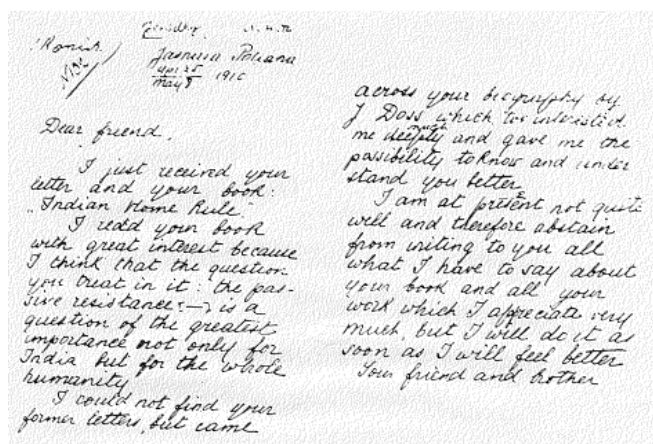 Jasnaia Poliana
May 8 1910
Dear friend.
I just received your
letter and your book:
"Indian Home Rule".
I read your book
with great interest because
I think that the question
you treat in it: the pas-
sive resistance — is a
question of the greatest
importance not only for
India but for the whole
humanity
I could not find your
former letters, but came
across your biography by
J Doss which too interested
me much and gave me the
possibility to know and under
stand you better.
I am at present not quite
well and therefore abstain
from writing to you all
what I have to say about
your book and all your
work which I appreciate very
much, but I will do it as
soon as I will feel better
Your friend and brother